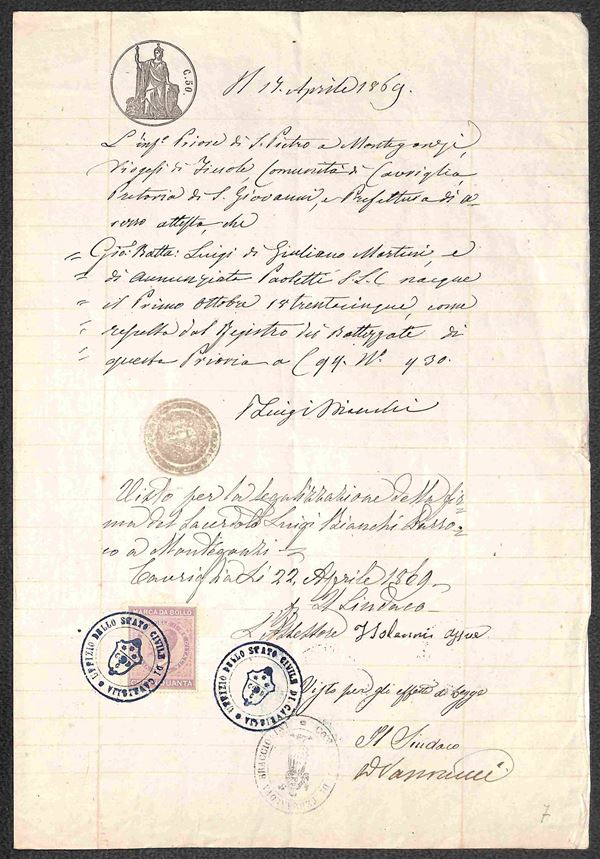 C. 50.
Il 14. Aprile 1869.
L'inf.º Priore di S. Pietro a Montegonzi
Diogesi di Fiesole Comunità di Cavriglia
Pretoria di S. Giovanni, e Prefettura di A-
rezzo attesta, che
Gio: Batta: Luigi di Giuliano Martini e
di Annunziata Paoletti S. L. C. nacque
il Primo Ottobre 18trentacinque, come
resulta dal Registro dei Battezzati di
questa Prioria a C 99. Nº 430.
P Luigi Bianchi
Visto per la legalizzazione della fir-
ma del Sacerdote Luigi Bianchi Parro-
co a Montegonzi
Cavriglia Lì 22. Aprile 1869.
p Il Sindaco
L'Assessore
MARCA DA BOLLO
UFFIZIO DELLO STATO CIVILE DI CAVRIGLIA
UFFIZIO DELLO STATO CIVILE DI CAVRIGLIA
Visto per gli effetti di Legge
Il Sindaco
7